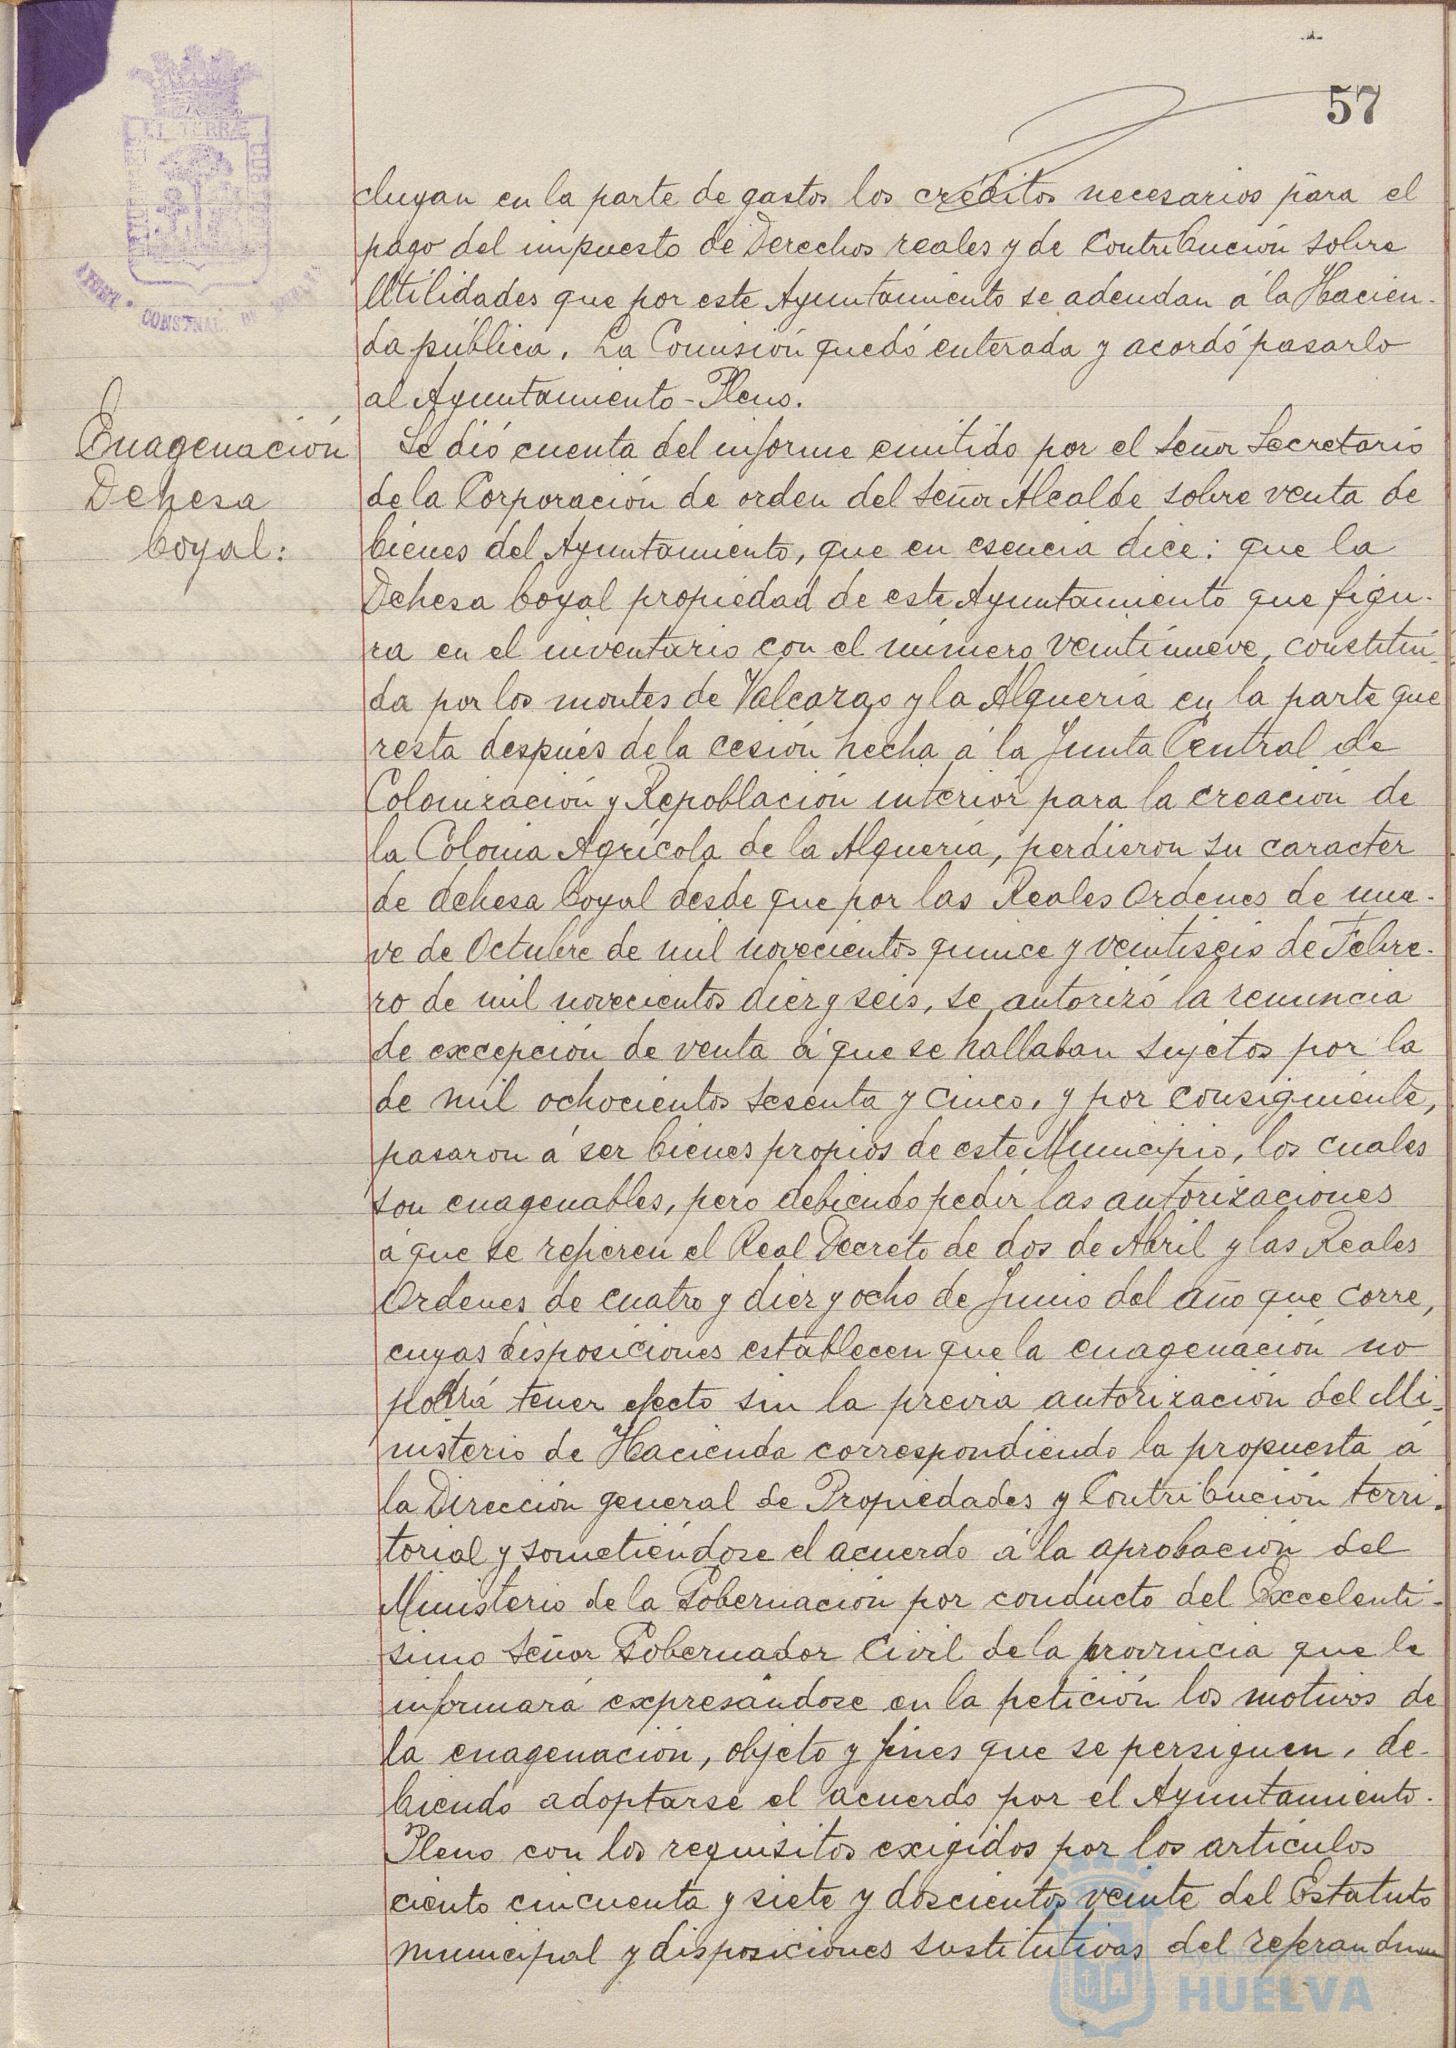 57
cluyan en la parte de gastos los créditos necesarios para el
pago del impuesto de Derechos reales y de Contribución sobre
Utilidades que por este Ayuntamiento se adeudan á la Hacien-
da pública. La Comisión quedó enterada y acordó pasarlo
al Ayuntamiento-Pleno.
Enagenación
Dehesa
boyal:
Se dió cuenta del informe emitido por el Señor Secretario
de la Corporación de orden del Señor Alcalde sobre venta de
bienes del Ayuntamiento, que en esencia dice: que la
Dehesa boyal propiedad de este Ayuntamiento que figu-
ra en el inventario con el número veintinueve, constitui-
da por los montes de Valcaras y la Alquería en la parte que
resta después de la cesión hecha á la Junta Central de
Colonización y Repoblación interior para la creación de
la Colonia Agrícola de la Alquería, perdieron su caracter
de dehesa boyal desde que por las Reales Ordenes de nue-
ve de Octubre de mil novecientos quince y veintiseis de Febre-
ro de mil novecientos diez y seis, se autorizó la renuncia
de excepción de venta á que se hallaban sujetos por la
de mil ochocientos sesenta y cinco, y por consiguiente,
pasaron á ser bienes propios de este Municipio, los cuales
son enagenables, pero debiendo pedir las autorizaciones
á que se refieren el Real Decreto de dos de Abril y las Reales
Ordenes de cuatro y diez y ocho de Junio del año que corre,
cuyas disposiciones establecen que la enagenación no
podrá tener efecto sin la previa autorización del Mi-
nisterio de Hacienda correspondiendo la propuesta á
la Dirección general de Propiedades y Contribución terri-
torial y sometiéndose el acuerdo á la aprobación del
Ministerio de la Gobernación por conducto del Excelentí-
simo Señor Gobernador Civil de la provincia que le
informará expresándose en la petición los motivos de
la enagenación, objeto y fines que se persiguen, de-
biendo adoptarse el acuerdo por el Ayuntamiento-
Pleno con los requisitos exigidos por los artículos
ciento cincuenta y siete y doscientos veinte del Estatuto
municipal y disposiciones sustitutivas del referandum
Ayuntamiento de
HUELVA